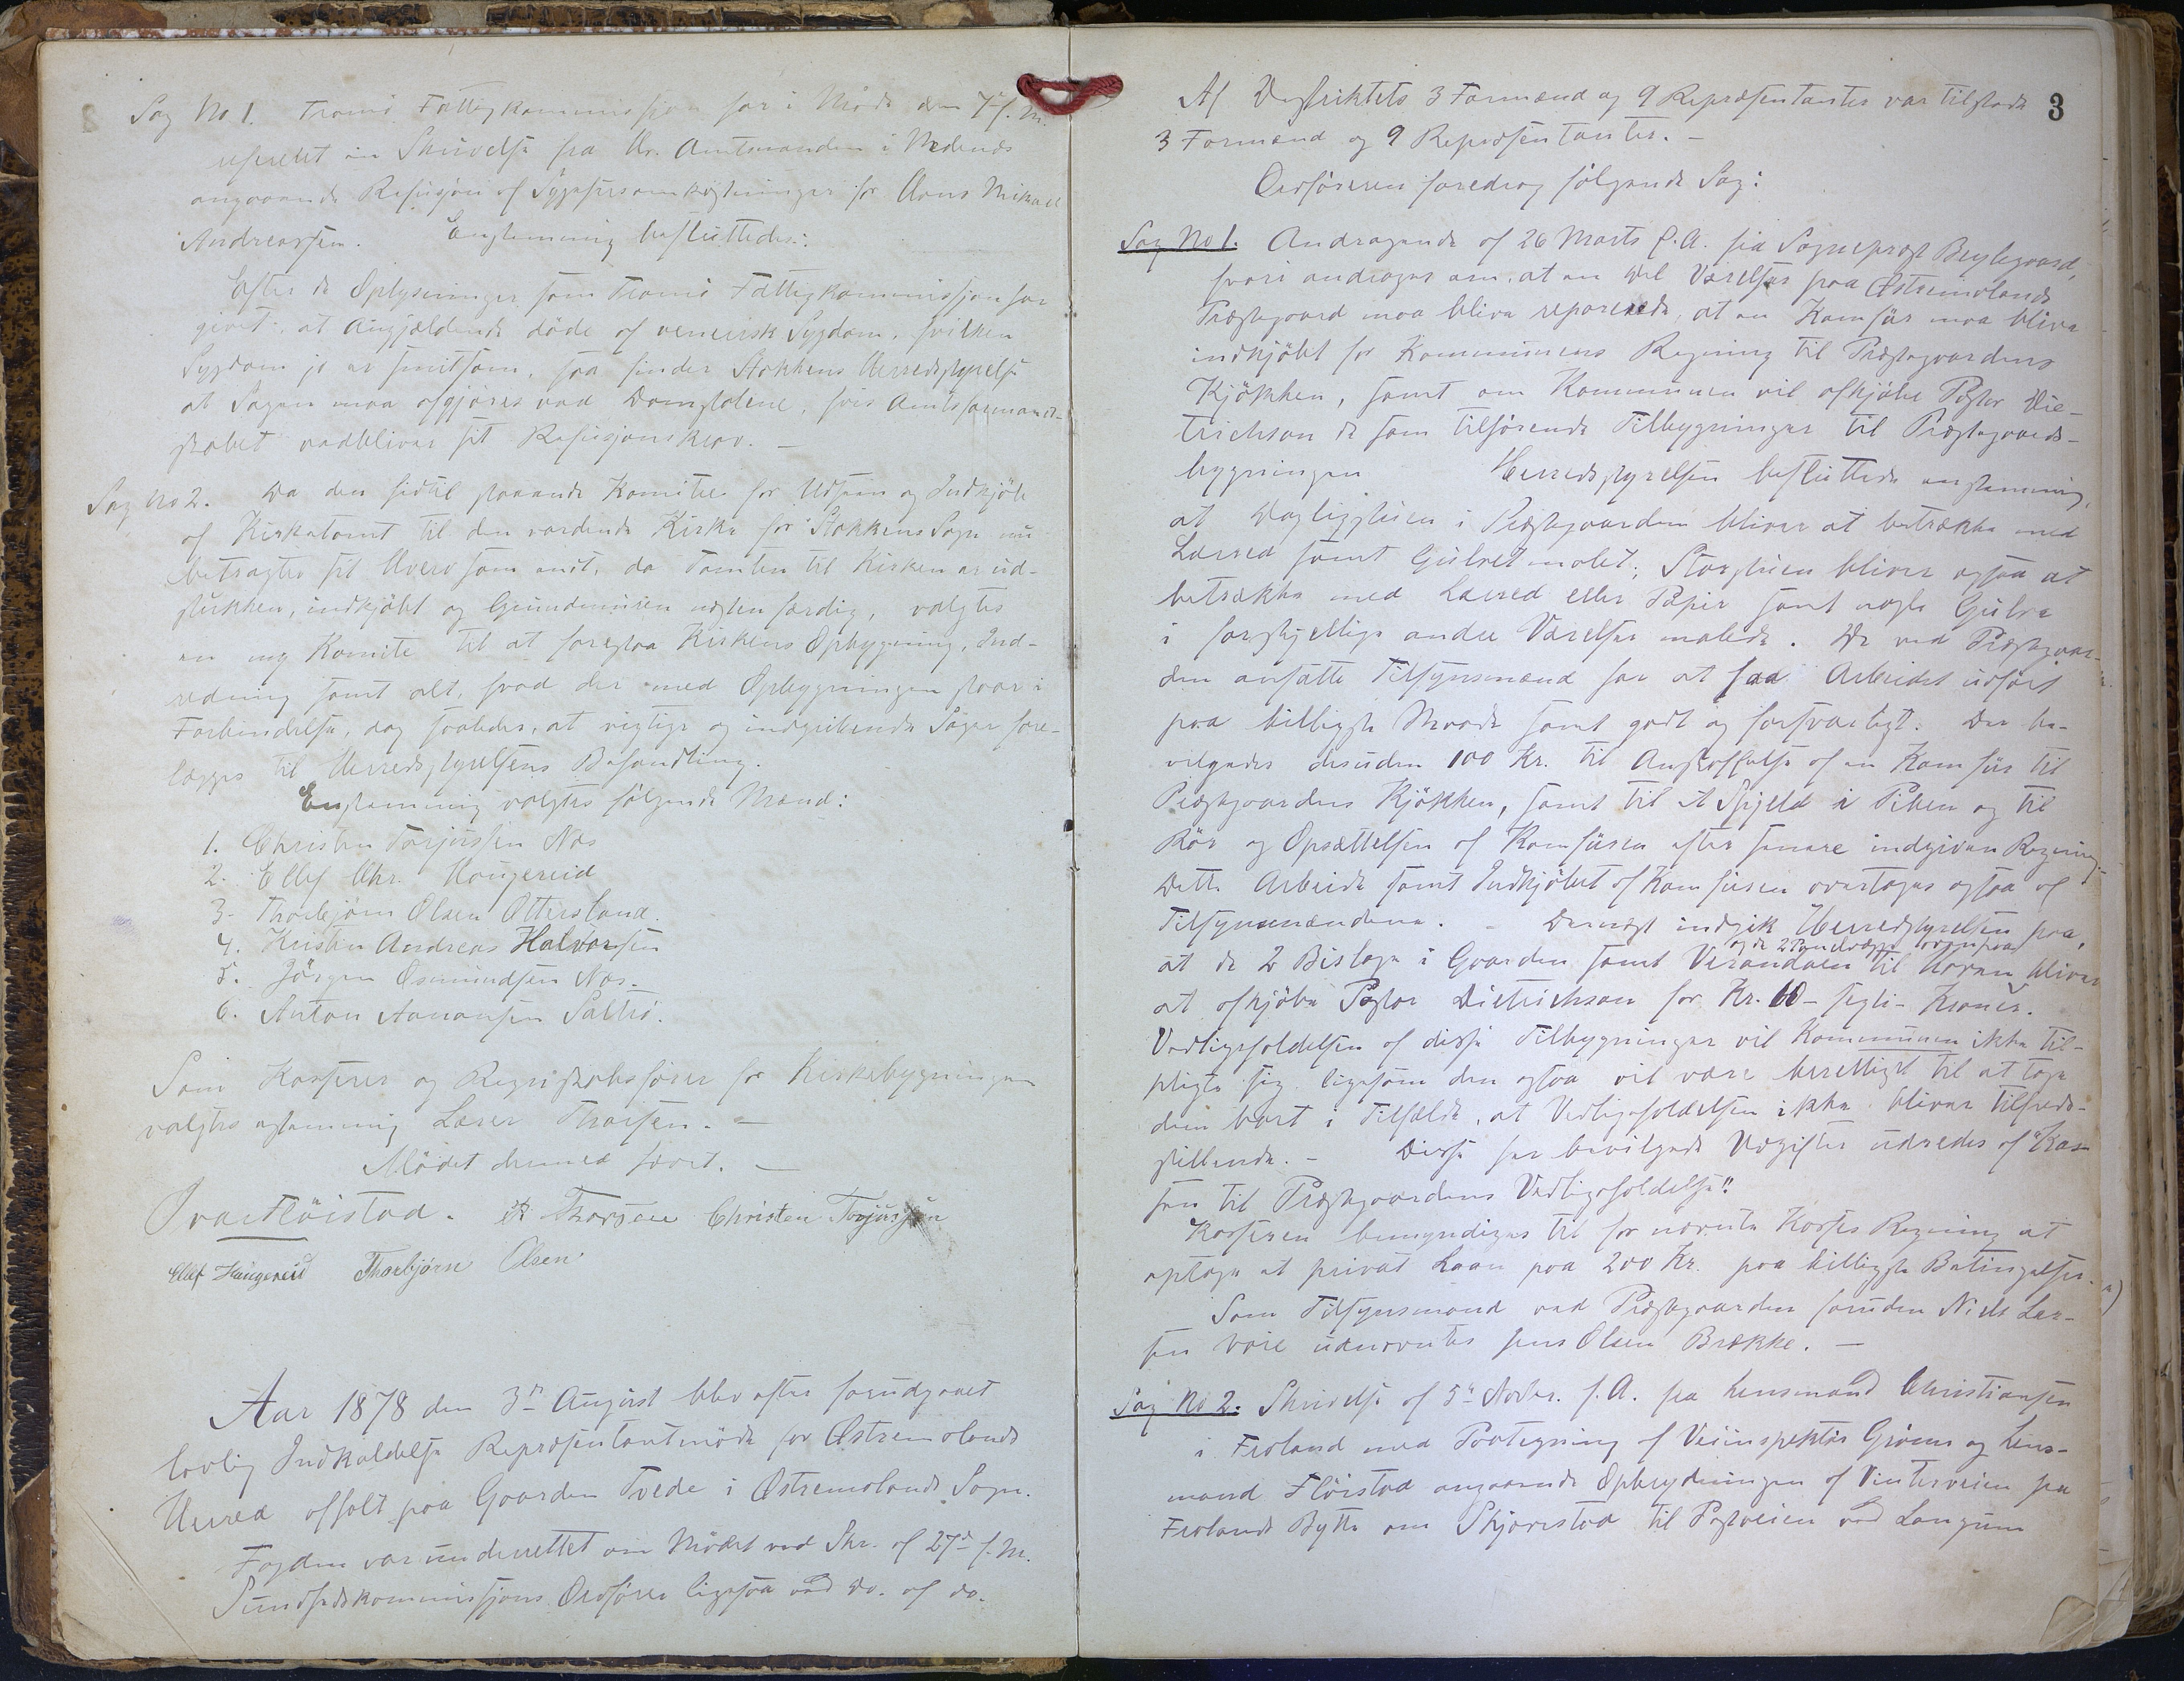 Sag No 1. Tromö Fattigkommission har i Möde den 7 f. M.
refereret en Skrivelse fra Hr. Amtmanden i Nedenæs
angaaende Refusjon af Sygeforsorgsomkostninger for Hans Mikael
Andreassen. Enstemmig besluttedes:
Efter de Oplysninger som Tromö Fattigkommissjon har
givet, at Angjældende döde af venerisk Sygdom, hvilken
Sygdom jo er smitsom, saa finder Stokkens Herredsstyrelse
at Sagen maa afgjöres ved Domstolene, hvis Amtsformand-
skabet vedbliver sit Refusjonskrav. —
Sag No 2. Da den hidtil staaende Komitee for Udseen og Indkjöb
af Kirketomt til den vordende Kirke for Stokkens Sogn nu
betragter sit Hverv som endt, da Tomten til Kirken er ud-
stukken, indkjöbt og Grundmuren næsten færdig, valgtes
en ny Komite til at forestaa Kirkens Opbygning, Ind-
redning samt alt, hvad der med Opbygningen staar i
Forbindelse, dog saaledes, at vigtige og indgribende Sager fore-
lægges til Herredsstyrelsens Behandling.
Enstemmig valgtes fölgende Mænd:
1. Christen Torjussen Næs
2. Ellef Chr. Haugereid
3. Thorbjörn Olsen Ottersland.
4. Kristen Andreas Halvorsen
5. Jörgen Osmundsen Næs.
6. Anton Aanonsen Saltrö.
Som Kasserer og Regnskabsförer for Kirkebygningen
valgtes enstemmig Lærer Thorsen. —
Mödet dermed hævet. —
Ivar Flöistad. Thorsen Christen Torjussen
Ellef Haugereid Thorbjörn Olsen
Aar 1878 den 3die August blev efter forudgaaet
lovlig Indkaldelse Repræsentantmöde for Östremolands
Herred afholt paa Gaarden Tvede i Östremolands Sogn.
Fogden var underrettet om Mödet ved Skr. af 27de f. M.
Sundhedskommissjons Ordförer ligesaa ved do. af do.
3
Af Distriktets 3 Formænd og 9 Repræsentanter var tilstede
3 Formænd og 9 Repræsentanter. —
Ordföreren foredrog fölgende Sag:
Sag No 1. Andragende af 26 Marts f. A. fra Sogneprest Beylegaard,
hvori andrages om, at en Del Værelser paa Östremolands
Præstegaard maa blive reparerede, at en Komfür maa blive
indkjöbt for Kommunens Regning til Præstegaardens
Kjökken, samt om Kommunen vil afkjöbe Pastor Die-
trichson de ham tilhörende Tilbygninger til Præstegaards-
bygningen Herredsstyrelsen besluttede enstemmig,
at Dagligstuen i Præstegaarden bliver at betrække med
Lærred samt Gulvet malet; Storstuen bliver ogsaa at
betrække med Lærred eller Papir samt nogle Gulve
i forskjellige andre Værelser malede. De ved Præstegaar-
den ansatte Tilsynsmænd har at faa Arbeidet udfört
paa billigste Maade samt godt og forsvarligt. Der be-
vilgedes desuden 100 Kr. til Anskaffelse af en Komfur til
Præstegaardens Kjökken, samt til et Spjeld i Piben og til
Rör og Opsættelsen af Komfuren efter senere indgiven Regning.
Dette Arbeide samt Indkjöbet af Komfuren overtages ogsaa af
Tilsynsmændene. — Dernæst indgik Herredsstyrelsen paa,
og de 2 ovenpaa
at de 2 Bislag i Gaarden samt Verandaen til Haven bliver
at afkjöbe Pastor Dietrichson for Kr. 60 — Kroner.
Vedligeholdelsen af disse Tilbygninger vil Kommunen ikke til-
pligte sig ligesom den ogsaa vil være berettiget til at tage
dem bort i Tilfælde, at Vedligeholdelsen ikke bliver tilfreds-
stillende. — Disse her bevilgede Udgifter udredes af "Kas-
sen til Præstegaardens Vedligeholdelse".
Kasseren bemyndiges til for nævnte Kasses Regning at
optage et privat Laan paa 200 Kr. paa billigste Betingelser.
Som Tilsynsmænd ved Præstegaarden foruden Niels Lar-
sen Vaje udnævntes Jens Olsen Brække. —
Sag No 2. Skrivelse af 5te Novbr. f. A. fra Lensmand Christiansen
i Froland med Paategning af Veiinspektör Gröum og Lens-
mand Flöistad angaaende Opbrydningen af Vinterveien fra
Frolands Bytte om Skjævestad til Postveien ved Langum